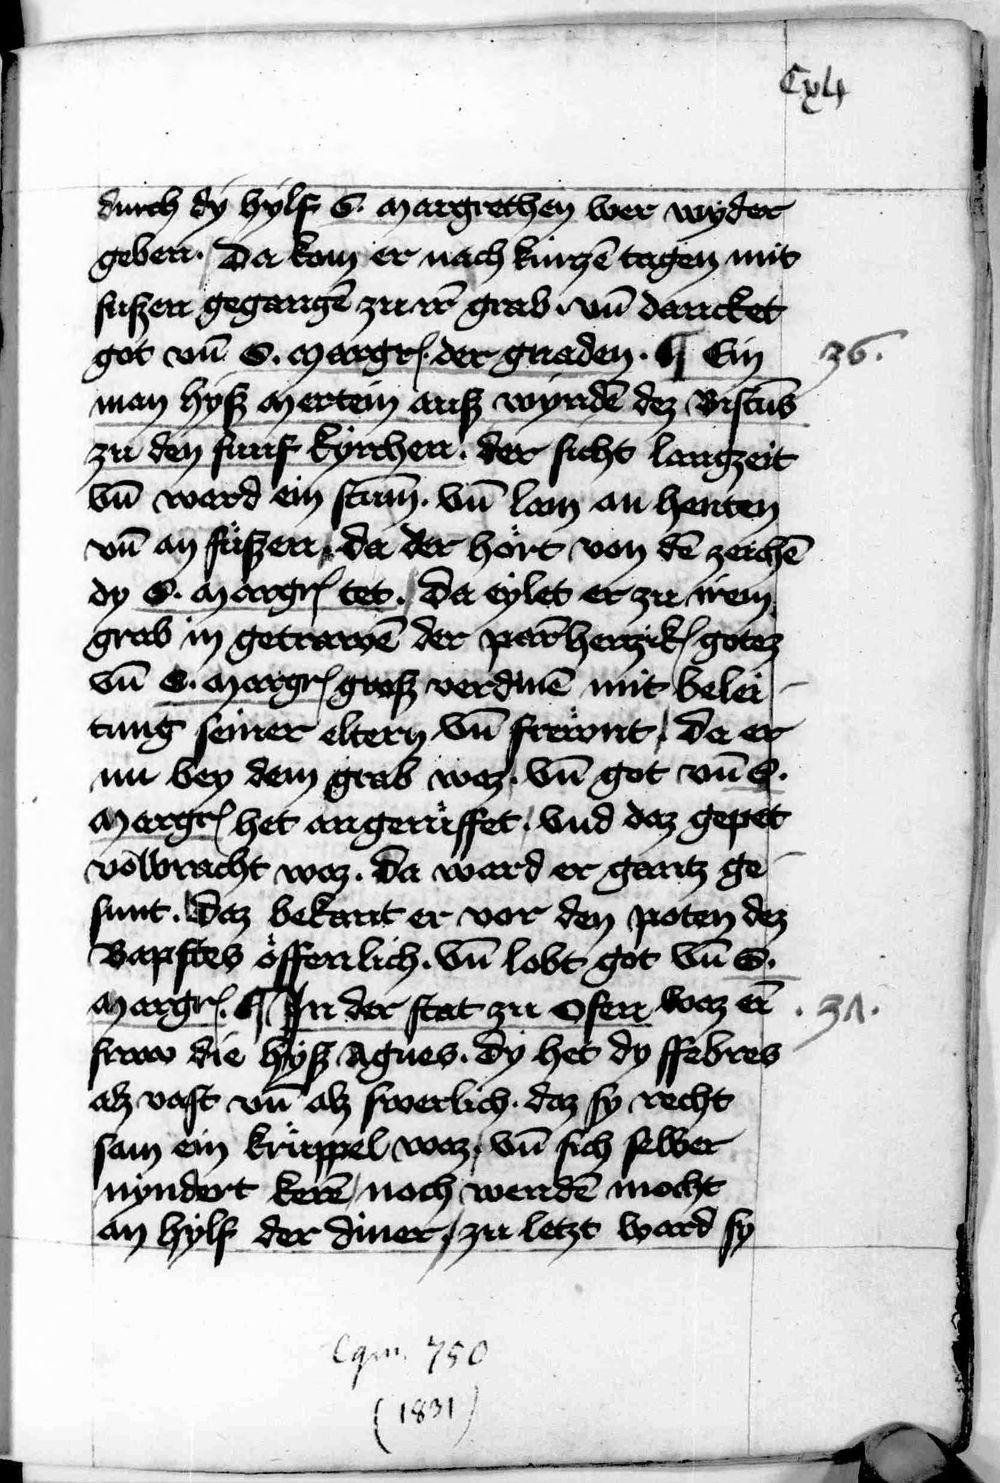 Cxl4
durch dy hylf S. Margrethen wer wyder
geben. Da kom er nach kurczē tagen mit
fuszen gegangē zu irē grab. vn̄ dancket
got vn̄ S. Margr. der gnaden. ¶ Ein
36.
man hysz Mertein ausz wyndē dez Bistūs
zu den funf kyrchen. der sicht langzeit
vn̄ ward ein stum̄. vn̄ lam an henten
vn̄ an fůszen. da der hört von dē zeichē
dy S. Margr tet. Da eylet er zu irem
grab in getrawē der parm̄hertzik gotez
vn̄ S. Margr grosz verdinē mit belei-
tung seiner eltern vn̄ frewnt. Da er
nu bey dem grab waz. vn̄ got vn̄ S.
Margr het angerůffet. vnd daz gepet
volbracht waz. Da ward er gantz ge-
sunt. Daz bekant er vor den poten dez
Bapstes öffenlich. vn̄ lobt got vn̄ S.
Margr. ¶ In der stat zu Ofen waz eī
37.
fraw die hysz Agnes. Dy het dy ffebres
alz vast vn̄ alz swerlich. daz sy recht
sam ein krüppel waz. vn̄ sich selber
nyndert kerē noch wendē mocht
an hylf der diner. zu letzt ward sy
Cgm. 750
(1831)